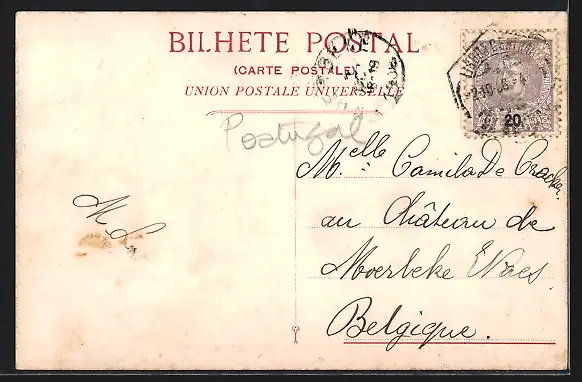 BILHETE POSTAL
(CARTE POSTALE)
UNION POSTALE UNIVERSELLE
Portugal
20
Melle Camila De Cracker
au Château de
Moerbeke Waes
Belgique.